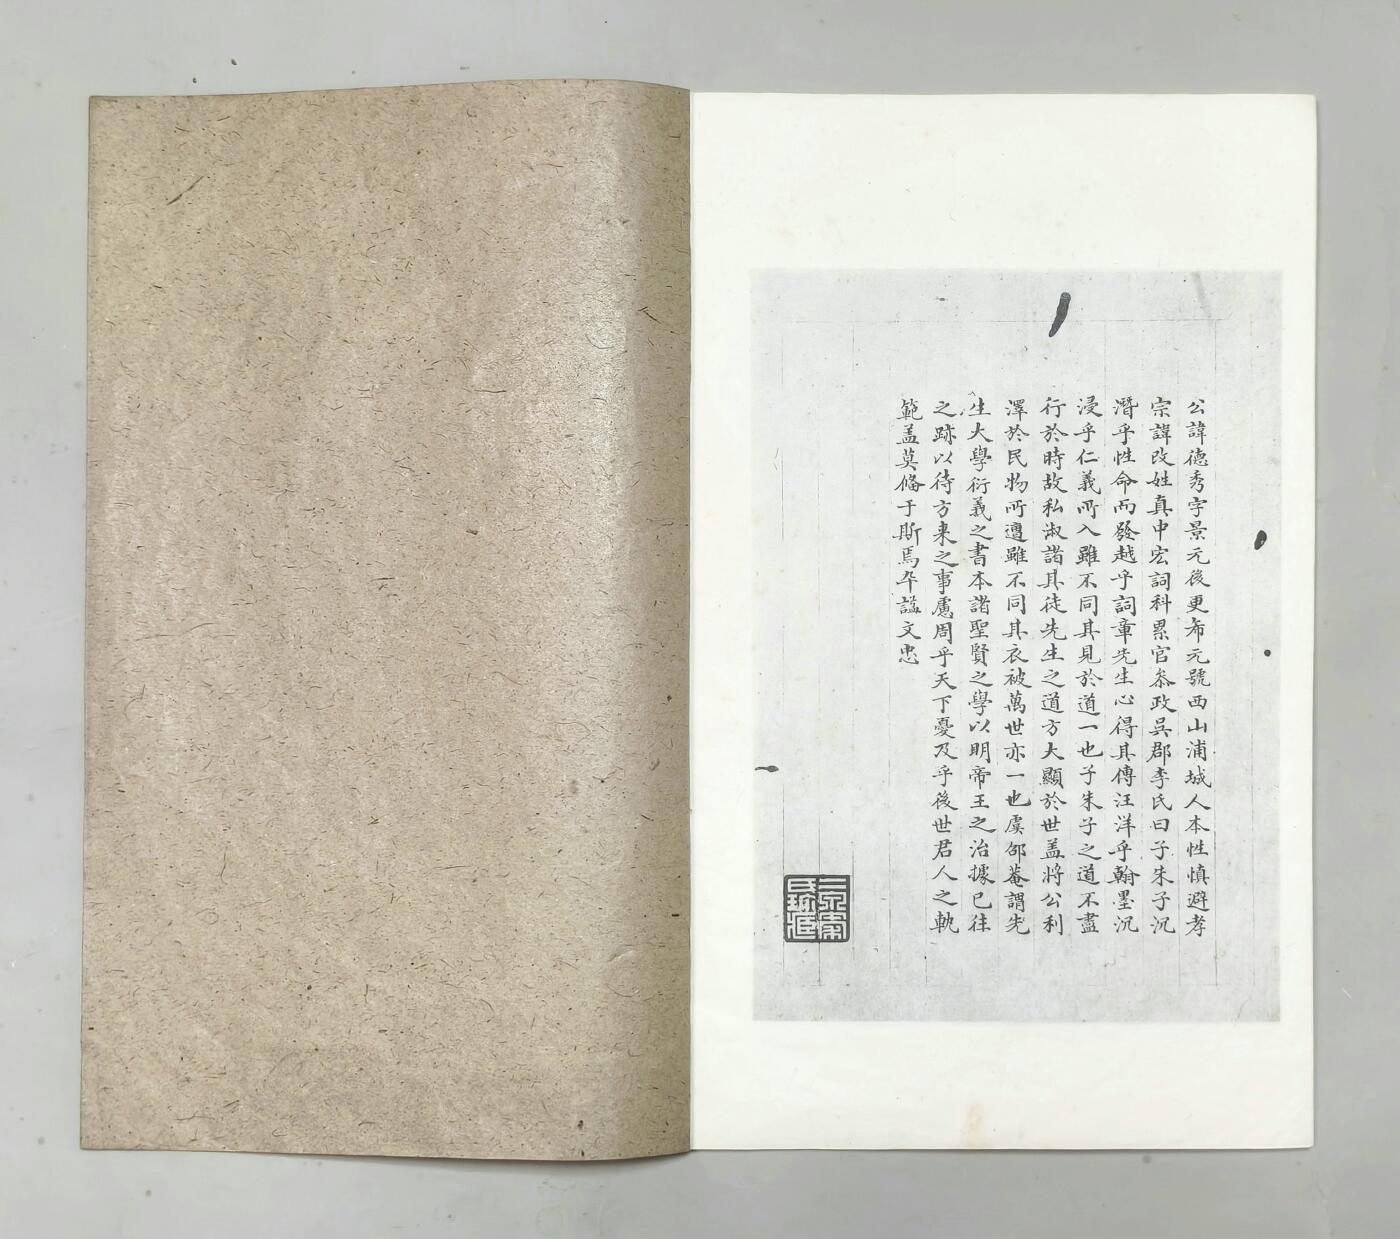 公諱德秀字景元後更希元號西山浦城人本性慎避孝
宗諱改姓真中宏詞科累官叅政吳郡李氏曰子朱子沉
潛乎性命而發越乎詞章先生心得其傳汪洋乎翰墨沉
浸乎仁義所入雖不同其見於道一也子朱子之道不盡
行於時故私淑諸其徒先生之道方大顯於世盖將公利
澤於民物所遭雖不同其衣被萬世亦一也虞邵菴謂先
生大學衍義之書本諸聖賢之學以明帝王之治據已往
之跡以待方来之事慮周乎天下憂及乎後世君人之軌
範盖莫俻于斯焉卒謚文忠